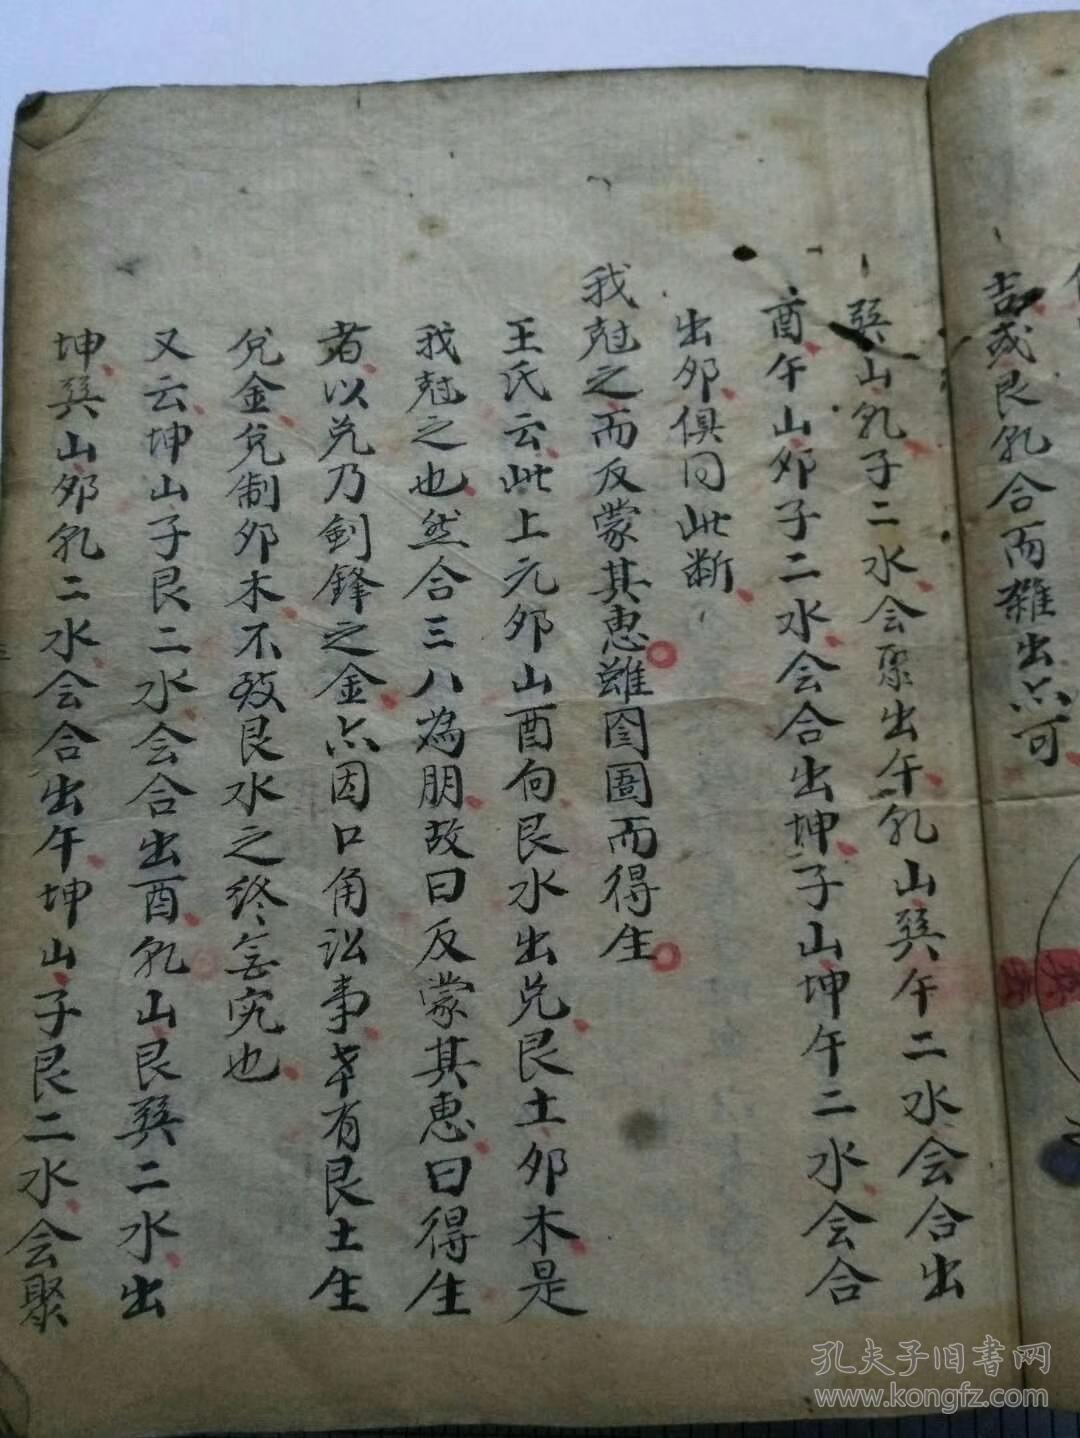 吉或艮乹合而雜出亦可
巽山乹子二水会聚出午乹山巽午二水会合出
酉午山夘子二水会合出坤子山坤午二水会合
出夘俱同此断
我尅之而反蒙其惠雖囹圄而得生
王氏云此上元夘山酉向艮水出兑艮土夘木是
我尅之也然合三八為朋故曰反蒙其惠曰得生
者以兑乃剑鋒之金亦因口角訟事幸有艮土生
兑金兑制夘木不致艮水之终無究也
又云坤山子艮二水会合出酉乹山艮巽二水出
坤巽山夘乹二水会合出午坤山子艮二水会聚
孔夫子旧书网
www.kongfz.com